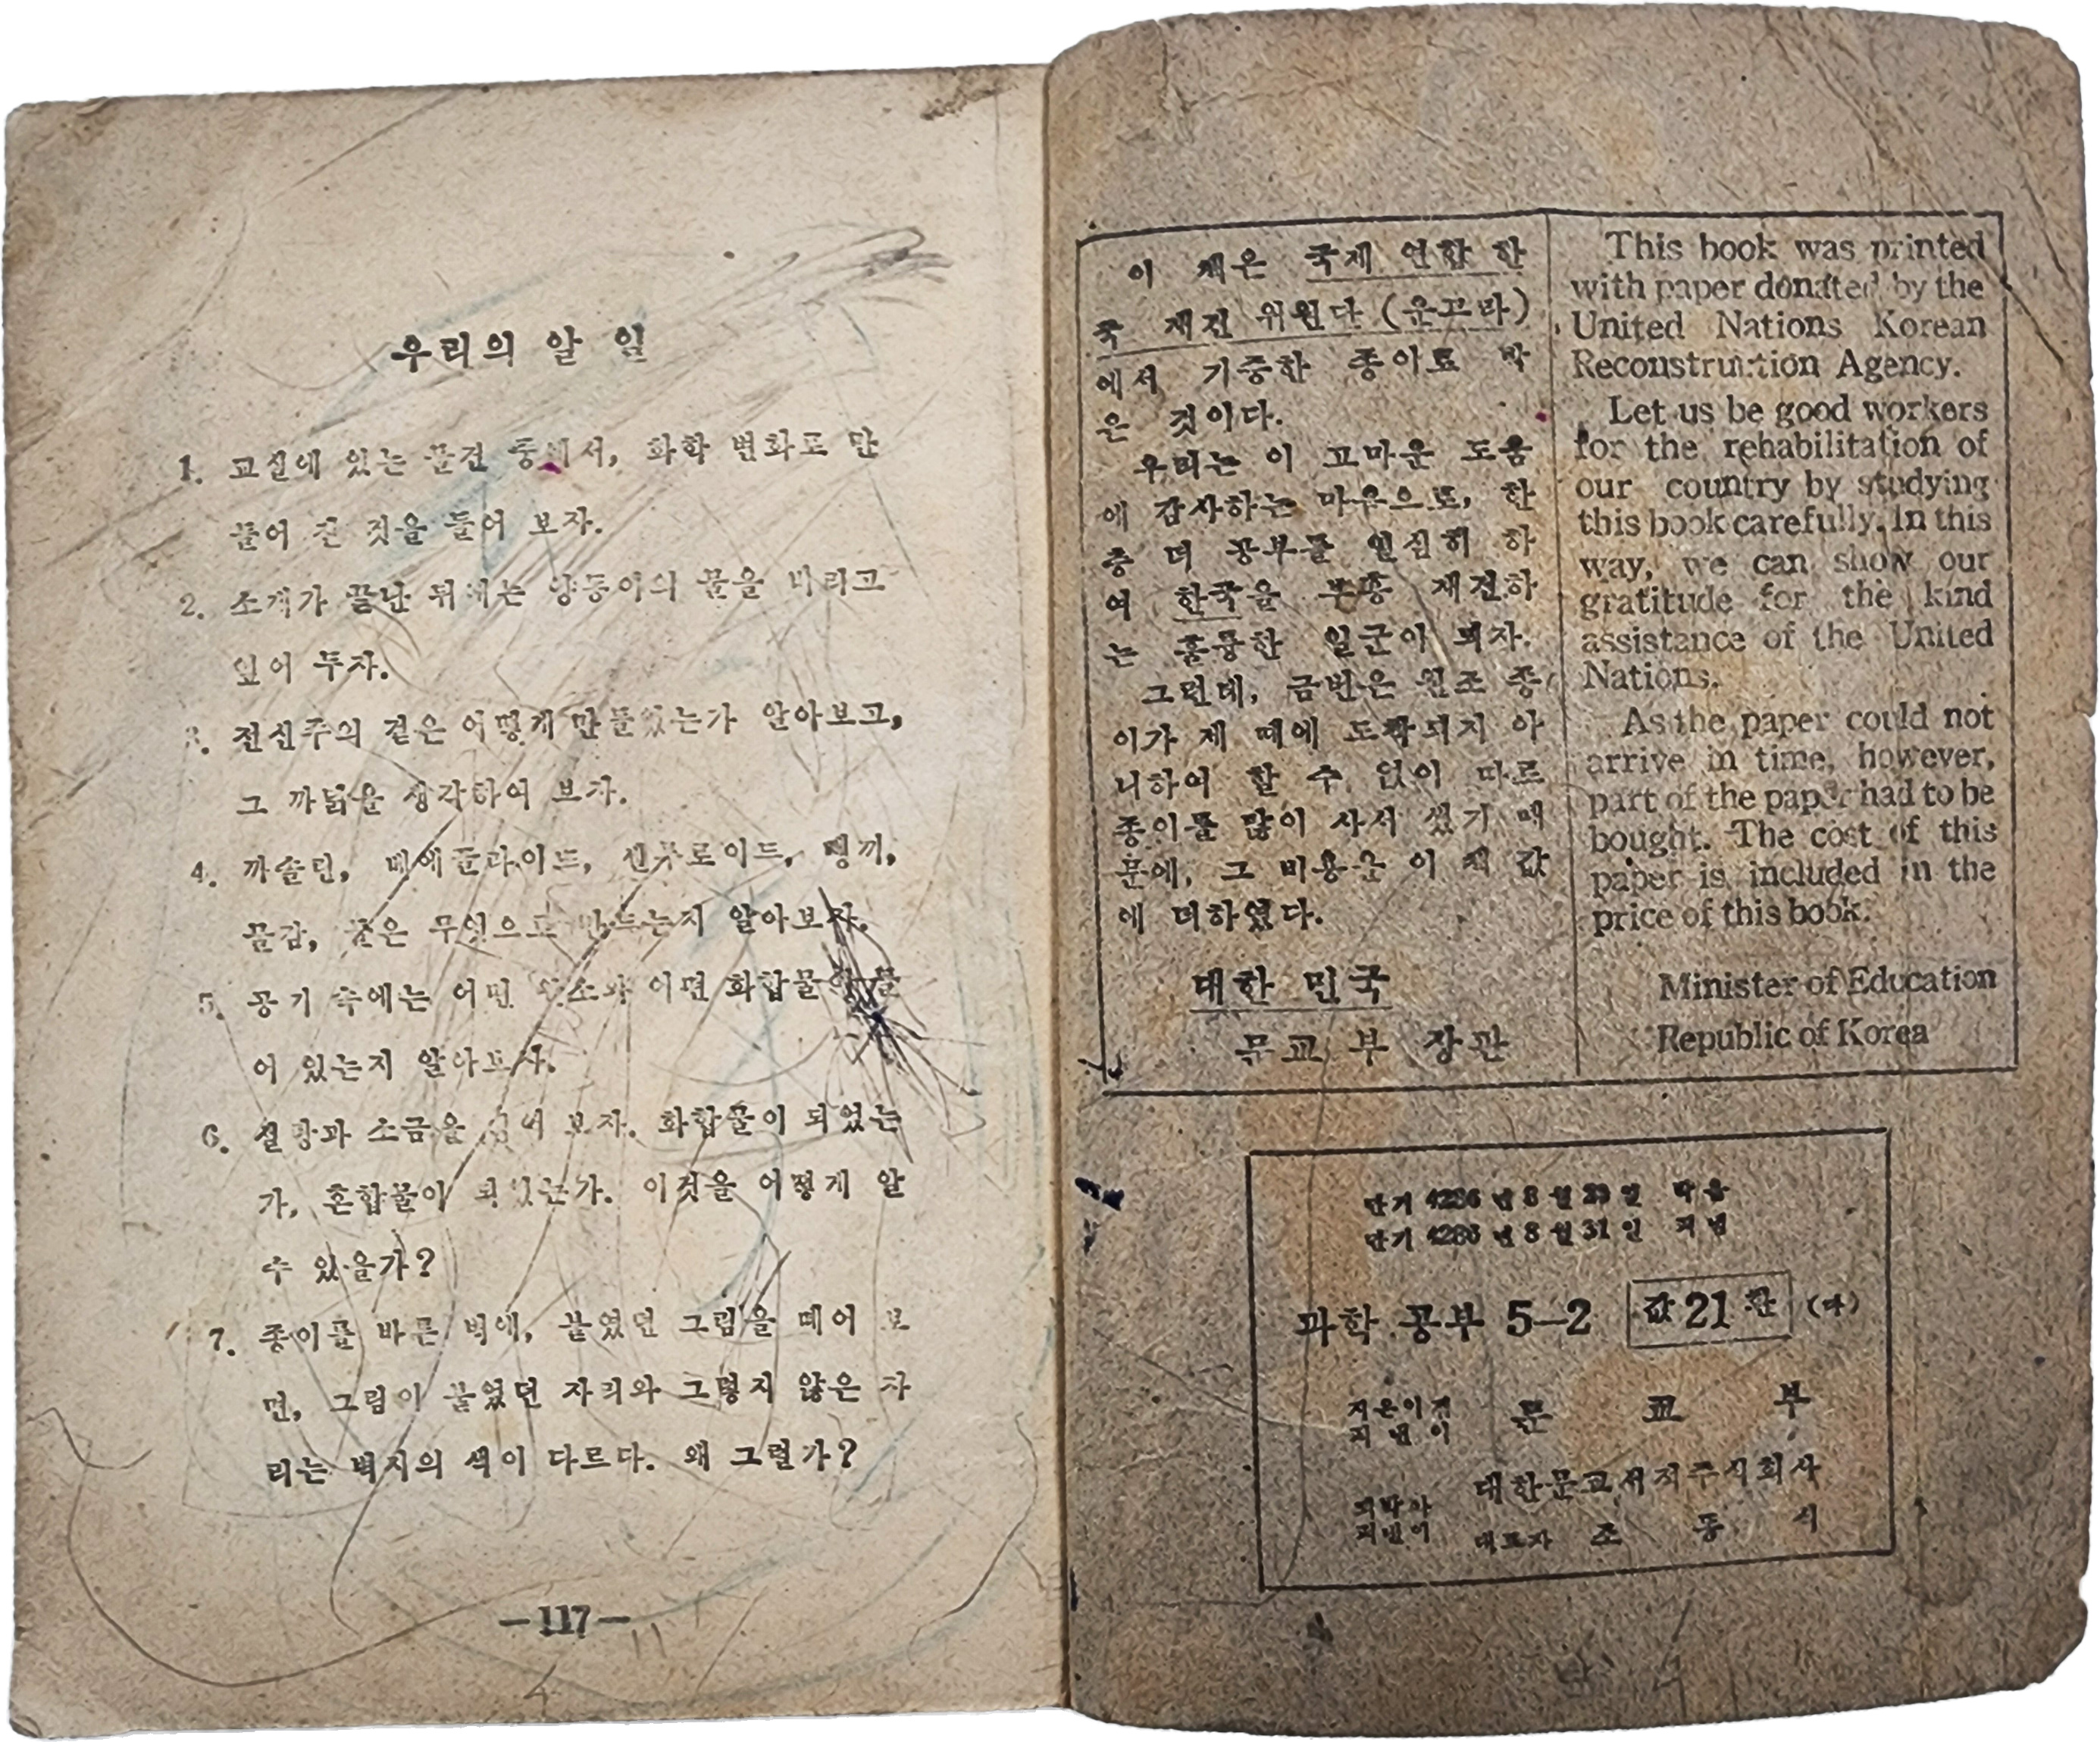 우리의 알 일
1. 교실에 있는 물건 중에서, 화학 변화로 만
들어 진 것을 들어 보자.
2. 소개가 끝난 뒤에는 양동이의 물을 버리고
엎어 두자.
3. 전신주의 겉은 어떻게 만들었는가 알아보고,
그 까닭을 생각하여 보자.
4. 까솔린, 베에클라이트, 셀루로이드, 뺑끼,
물감, 풀은 무엇으로 만드는지 알아보자.
5. 공기 속에는 어떤 원소와 어떤 화합물이 들
어 있는지 알아보자.
6. 설탕과 소금을 섞어 보자. 화합물이 되었는
가, 혼합물이 되었는가. 이것을 어떻게 알
수 있을가?
7. 종이를 바른 벽에, 붙였던 그림을 떼어 보
면, 그림이 붙었던 자리와 그렇지 않은 자
리는 벽지의 색이 다르다. 왜 그럴가?
—117—
이 책은 국제 연합 한
국 재건 위원단 (운끄라)
에서 기증한 종이로 박
은 것이다.
우리는 이 고마운 도움
에 감사하는 마음으로, 한
층 더 공부를 열심히 하
여 한국을 부흥 재건하
는 훌륭한 일군이 되자.
그런데, 금번은 원조 종
이가 제 때에 도착되지 아
니하여 할 수 없이 따로
종이를 많이 사서 썼기 때
문에, 그 비용은 이 책 값
에 더하였다.
대한 민국
문교부 장관
This book was printed
with paper donated by the
United Nations Korean
Reconstruction Agency.
Let us be good workers
for the rehabilitation of
our country by studying
this book carefully. In this
way, we can show our
gratitude for the kind
assistance of the United
Nations.
As the paper could not
arrive in time, however,
part of the paper had to be
bought. The cost of this
paper is included in the
price of this book.
Minister of Education
Republic of Korea
단기 4286년 8월 일 박음
단기 4286년 8월 31일 펴냄
과학 공부 5—2 값 21환 (다)
지은이 겸
펴낸이 문교부
대한문교서적주식회사
펴낸이 대표자 조 동 식